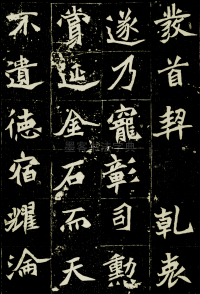 發首契乾
遂乃寵彰司勳
賞延金石而天
不遺德宿耀淪